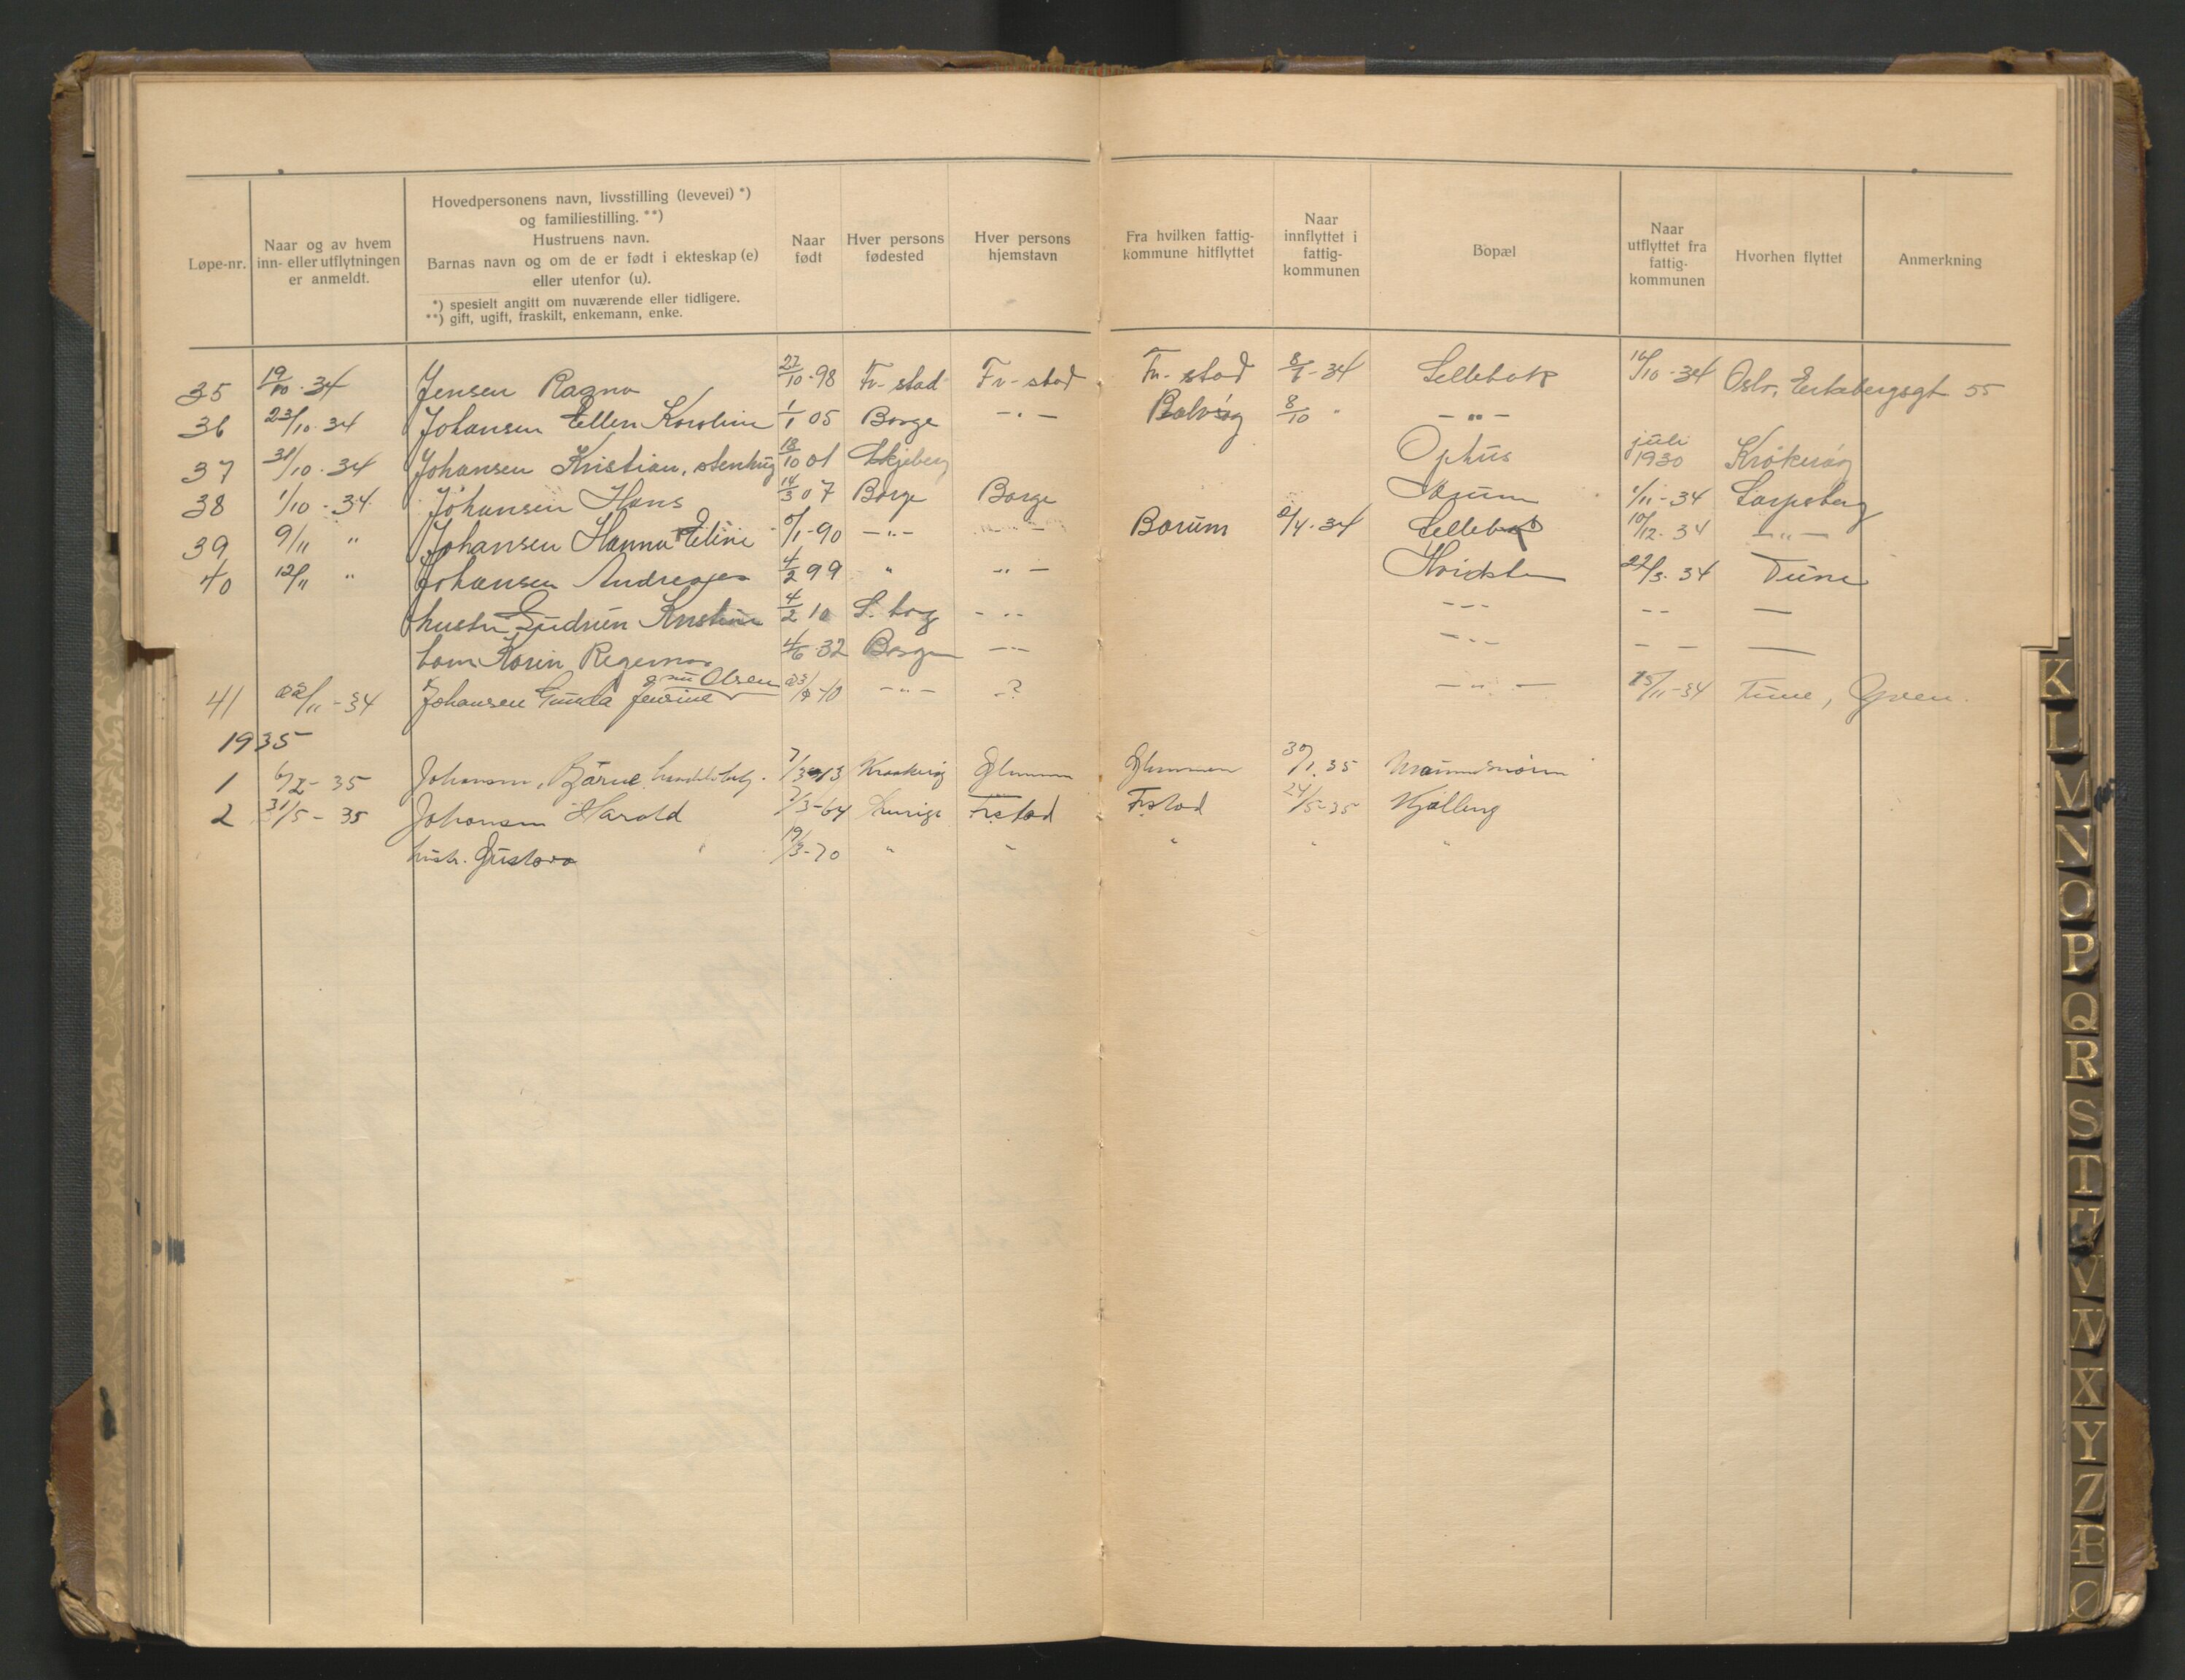 Løpe-nr.
Naar og av hvem
inn- eller utflytningen
er anmeldt.
Hovedpersonens navn, livsstilling (levevei) *)
og familiestilling. **)
Hustruens navn.
Barnas navn og om de er født i ekteskap (e)
eller utenfor (u).
*) spesielt angitt om nuværende eller tidligere.
**) gift, ugift, fraskilt, enkemann, enke.
Naar
født
Hver persons
fødested
Hver persons
hjemstavn
Fra hvilken fattig-
kommune hitflyttet
Naar
innflyttet i
fattig-
kommunen
Bopæl
Naar
utflyttet fra
fattig-
kommunen
Hvorhen flyttet
Anmerkning
35 19/10-34 Jensen Ragna 27/10-98 Fr-stad Fr-stad Fr-stad -34 Sellebak 16/10-34 Oslo, 55
36 23/10-34 Johansen Ellen Karoline 1/1 05 Borge -"- 8/10 " -"-
37 31/10-34 Johansen Kristian, stenhug 18/10 01 Skjeberg Ophus juli 1930 Kråkerøy
38 1/10-34 Johansen Hans 14/3 07 Borge Borge 1/11-34 Sarpsborg
39 9/11 " Johansen Hanna Eline -90 -"- Bærum /4-34 Sellebak 10/12-34 -"-
40 12/11 " Johansen Andreas 4/2 99 " -"- 22/3-34 Tune
hustru Gudrun Kristine 4/2 10 S.borg -"- -"- -"- —
barn Karin 4/6-32 Borge -"- -"- - - —
41 22/11-34 Johansen Gunda Jensine Olsen -10 -"- -? -"- 15/11-34 Tune,
1935
1 6/2-35 Johansen, Bjarne 13 Kraakerøy Glemmen Glemmen 30/1.35
2 31/5-35 Johansen Harald /3-64 Sverige Fr.stad Fr.stad 24/5-35 Kjølberg
hustr. Gustava 19/3-70 " " " " "
K
L
M
N
O
P
Q
R
S
T
U
V
W
X
Y
Z
Æ
Ø